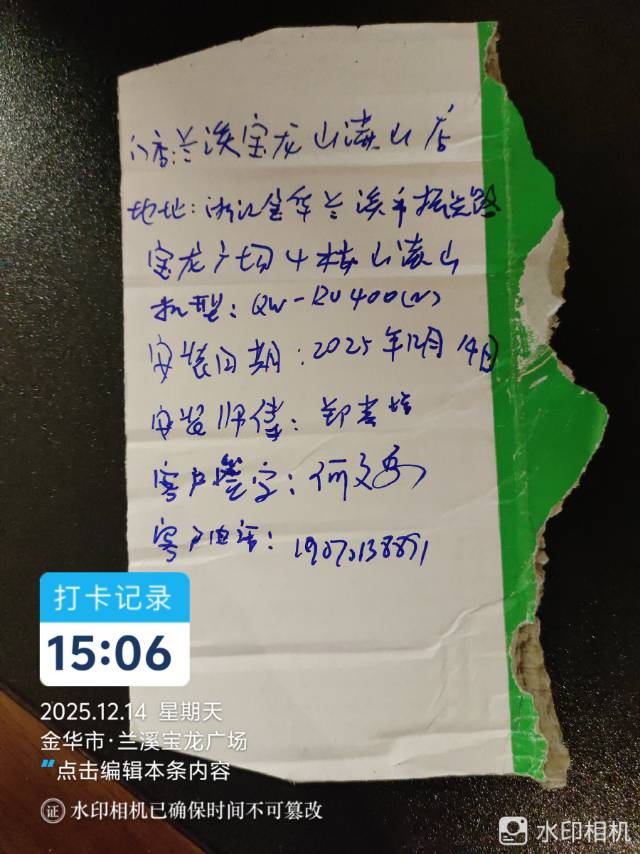 门店:兰溪宝龙山海山店
地址:浙江金华兰溪市振兴路
宝龙广场4楼山海山
机型:QW-RU400(N)
安装日期:2025年12月14日
安装师傅:郑
客户签字:何文
客户电话:
打卡记录
15:06
2025.12.14 星期天
金华市·兰溪宝龙广场
点击编辑本条内容
证 水印相机已确保时间不可篡改
水印相机